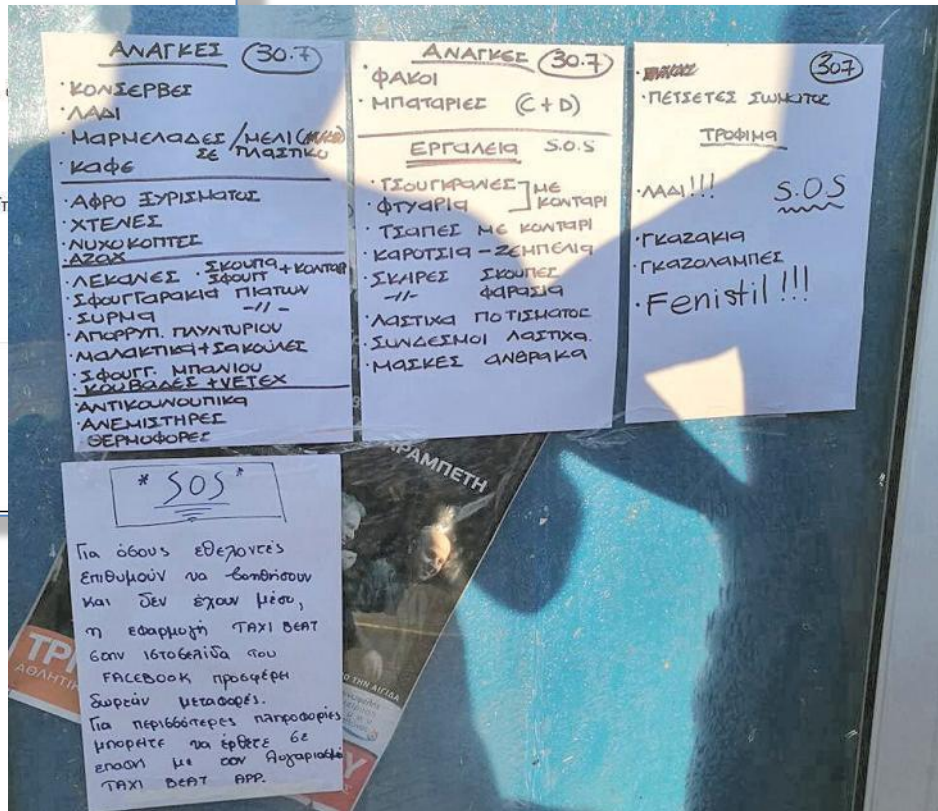 ΑΝΑΓΚΕΣ 30.7
· ΚΟΝΣΕΡΒΕΣ
· ΛΑΔΙ
· ΜΑΡΜΕΛΑΔΕΣ / ΜΕΛΙ
ΣΕ ΠΛΑΣΤΙΚΟ
· ΚΑΦΕ
· ΑΦΡΟ ΞΥΡΙΣΜΑΤΟΣ
· ΧΤΕΝΕΣ
· ΝΥΧΟΚΟΠΤΕΣ
· AZAX
· ΛΕΚΑΝΕΣ · ΣΚΟΥΠΑ
ΣΦΟΥΓΓ + ΚΟΝΤΑΡ
· ΣΦΟΥΓΓΑΡΑΚΙΑ ΠΙΑΤΩΝ
· ΣΥΡΜΑ -//-
· ΑΠΟΡΡΥΠ. ΠΛΥΝΤΥΡΙΟΥ
· ΜΑΛΑΚΤΙΚΑ + ΣΑΚΟΥΛΕΣ
· ΣΦΟΥΓΓ. ΜΠΑΝΙΟΥ
· ΚΟΥΒΑΔΕΣ + VETEX
· ΑΝΤΙΚΟΥΝΟΥΠΙΚΑ
· ΑΝΕΜΙΣΤΗΡΕΣ
· ΘΕΡΜΟΦΟΡΕΣ
ΑΝΑΓΚΕΣ 30.7
· ΦΑΚΟΙ
· ΜΠΑΤΑΡΙΕΣ (C + D)
ΕΡΓΑΛΕΙΑ S.O.S
· ΤΣΟΥΓΚΡΑΝΕΣ ΜΕ
· ΦΤΥΑΡΙΑ ΚΟΝΤΑΡΙ
· ΤΣΑΠΕΣ ΜΕ ΚΟΝΤΑΡΙ
· ΚΑΡΟΤΣΙΑ - ΖΕΜΠΕΛΙΑ
· ΣΚΑΡΕΣ ΣΚΟΥΠΕΣ
-//- ΦΑΡΑΣΙΑ
· ΛΑΣΤΙΧΑ ΠΟΤΙΣΜΑΤΟΣ
· ΣΥΝΔΕΣΜΟΙ ΛΑΣΤΙΧΑ.
· ΜΑΣΚΕΣ ΑΝΘΡΑΚΑ
307
· ΠΕΤΣΕΤΕΣ ΣΩΜΑΤΟΣ
ΤΡΟΦΙΜΑ
· ΛΑΔΙ!!! S.O.S
· ΓΚΑΖΑΚΙΑ
· ΓΚΑΖΟΛΑΜΠΕΣ
· Fenistil!!!
* SOS *
Για όσους εθελοντές
επιθυμούν να βοηθήσουν
και δεν έχουν μέσο,
η εφαρμογή TAXI BEAT
στην ιστοσελίδα του
FACEBOOK προσφέρει
δωρεάν μεταφορές.
Για περισσότερες πληροφορίες
μπορείτε να έρθετε σε
επαφή με τον λογαριασμό
TAXI BEAT APP.
ΑΡΑΜΠΕΤΗ
ΤΡΙ
ΑΘΛΗΤΙΚ
Ο ΤΗΝ ΑΙΓΙΔΑ